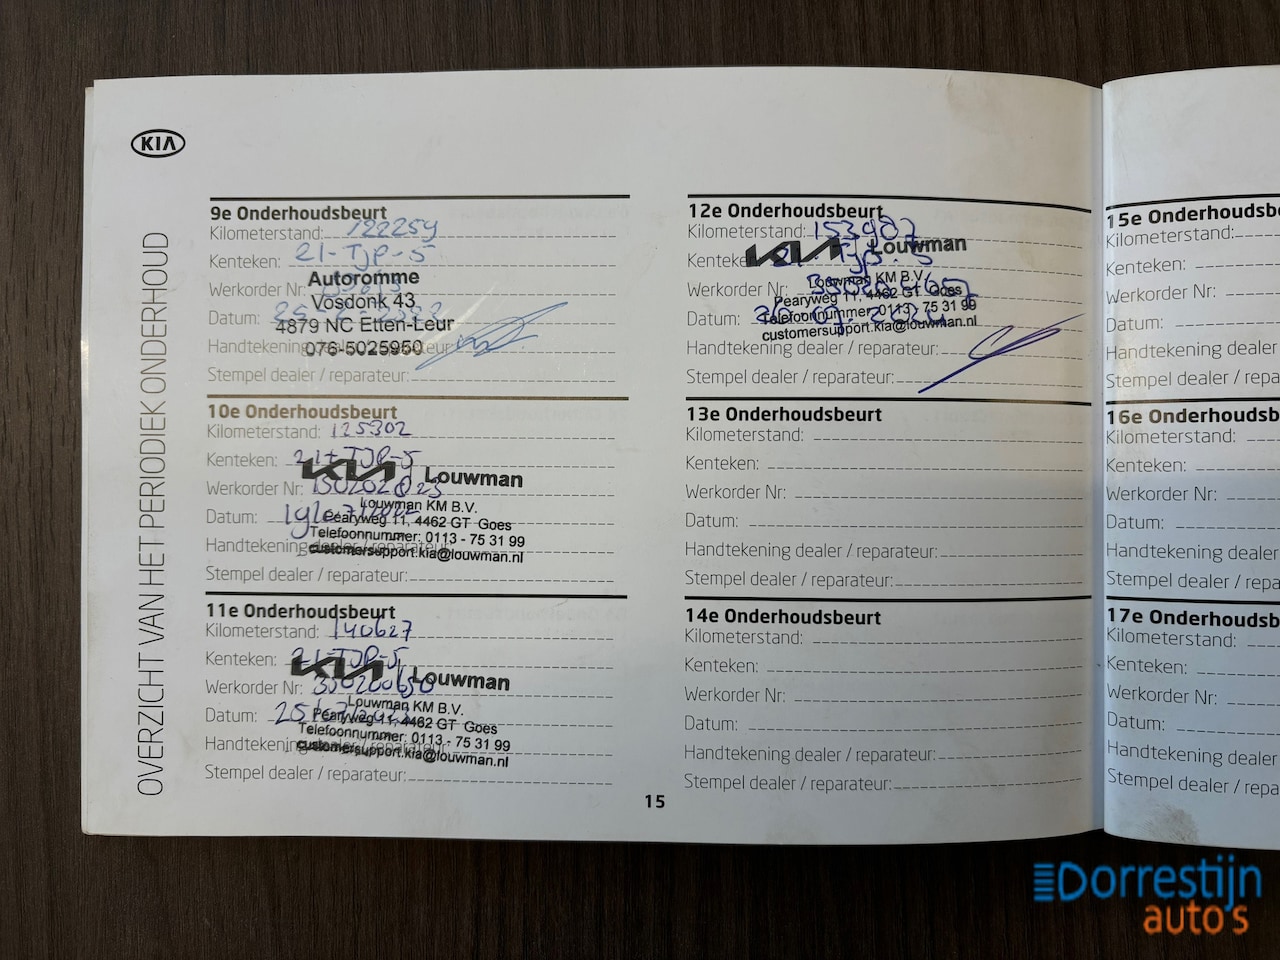 KIA
OVERZICHT VAN HET PERIODIEK ONDERHOUD
9e Onderhoudsbeurt
Kilometerstand: 122259
Kenteken: 21-TJP-5
Autoromme
Werkorder Nr:
Vosdonk 43
Datum:
4879 NC Etten-Leur
Handtekening dealer / reparateur:
076-5025950
Stempel dealer / reparateur:
10e Onderhoudsbeurt
Kilometerstand: 125302
Kenteken: 21-TJP-5
KIA Louwman
Werkorder Nr:
Louwman KM B.V.
Datum:
Pearyweg 11, 4462 GT Goes
Telefoonnummer: 0113 - 75 31 99
Handtekening dealer / reparateur:
customersupport.kia@louwman.nl
Stempel dealer / reparateur:
11e Onderhoudsbeurt
Kilometerstand: 140627
Kenteken: 21-TJP-5
KIA Louwman
Werkorder Nr: 350200650
Louwman KM B.V.
Datum:
Pearyweg 11, 4462 GT Goes
Telefoonnummer: 0113 - 75 31 99
Handtekening dealer / reparateur:
customersupport.kia@louwman.nl
Stempel dealer / reparateur:
12e Onderhoudsbeurt
Kilometerstand: 153987
KIA Louwman
Kenteken: 21-TJP-5
Louwman KM B.V.
Werkorder Nr:
Pearyweg 11, 4462 GT Goes
Telefoonnummer: 0113 - 75 31 99
Datum:
customersupport.kia@louwman.nl
Handtekening dealer / reparateur:
Stempel dealer / reparateur:
13e Onderhoudsbeurt
Kilometerstand:
Kenteken:
Werkorder Nr:
Datum:
Handtekening dealer / reparateur:
Stempel dealer / reparateur:
14e Onderhoudsbeurt
Kilometerstand:
Kenteken:
Werkorder Nr:
Datum:
Handtekening dealer / reparateur:
Stempel dealer / reparateur:
15
15e Onderhoudsb
Kilometerstand:
Kenteken:
Werkorder Nr:
Datum:
Handtekening dealer
Stempel dealer / repa
16e Onderhoudsb
Kilometerstand:
Kenteken:
Werkorder Nr:
Datum:
Handtekening dealer
Stempel dealer / repa
17e Onderhoudsb
Kilometerstand:
Kenteken:
Werkorder Nr:
Datum:
Handtekening dealer
Stempel dealer / repa
Dorrestijn
auto's